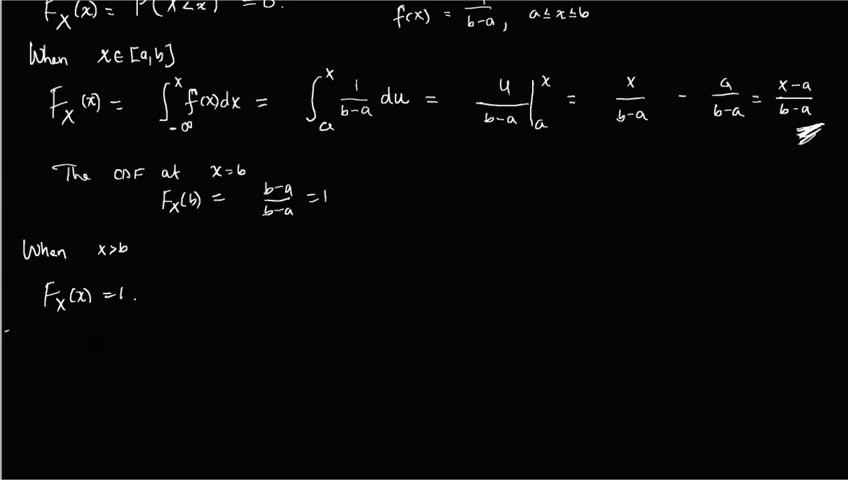 F_X(x) = P(X<x) = 0.
f(x) = 1/(b-a), a ≤ x ≤ b
When x ∈ [a,b]
F_X(x) = ∫_{-∞}^{x} f(x)dx = ∫_{a}^{x} 1/(b-a) du = u/(b-a) |_{a}^{x} = x/(b-a) - a/(b-a) = (x-a)/(b-a)
The CDF at x=b
F_X(b) = (b-a)/(b-a) = 1
When x>b
F_X(x) = 1.